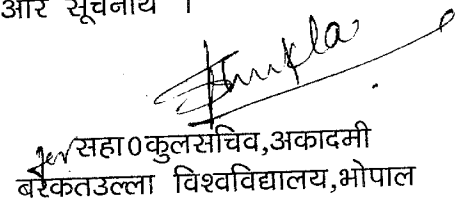 और सूचनार्थ ।
Shukla
for सहा0कुलसचिव,अकादमी
बरकतउल्ला विश्वविद्यालय,भोपाल